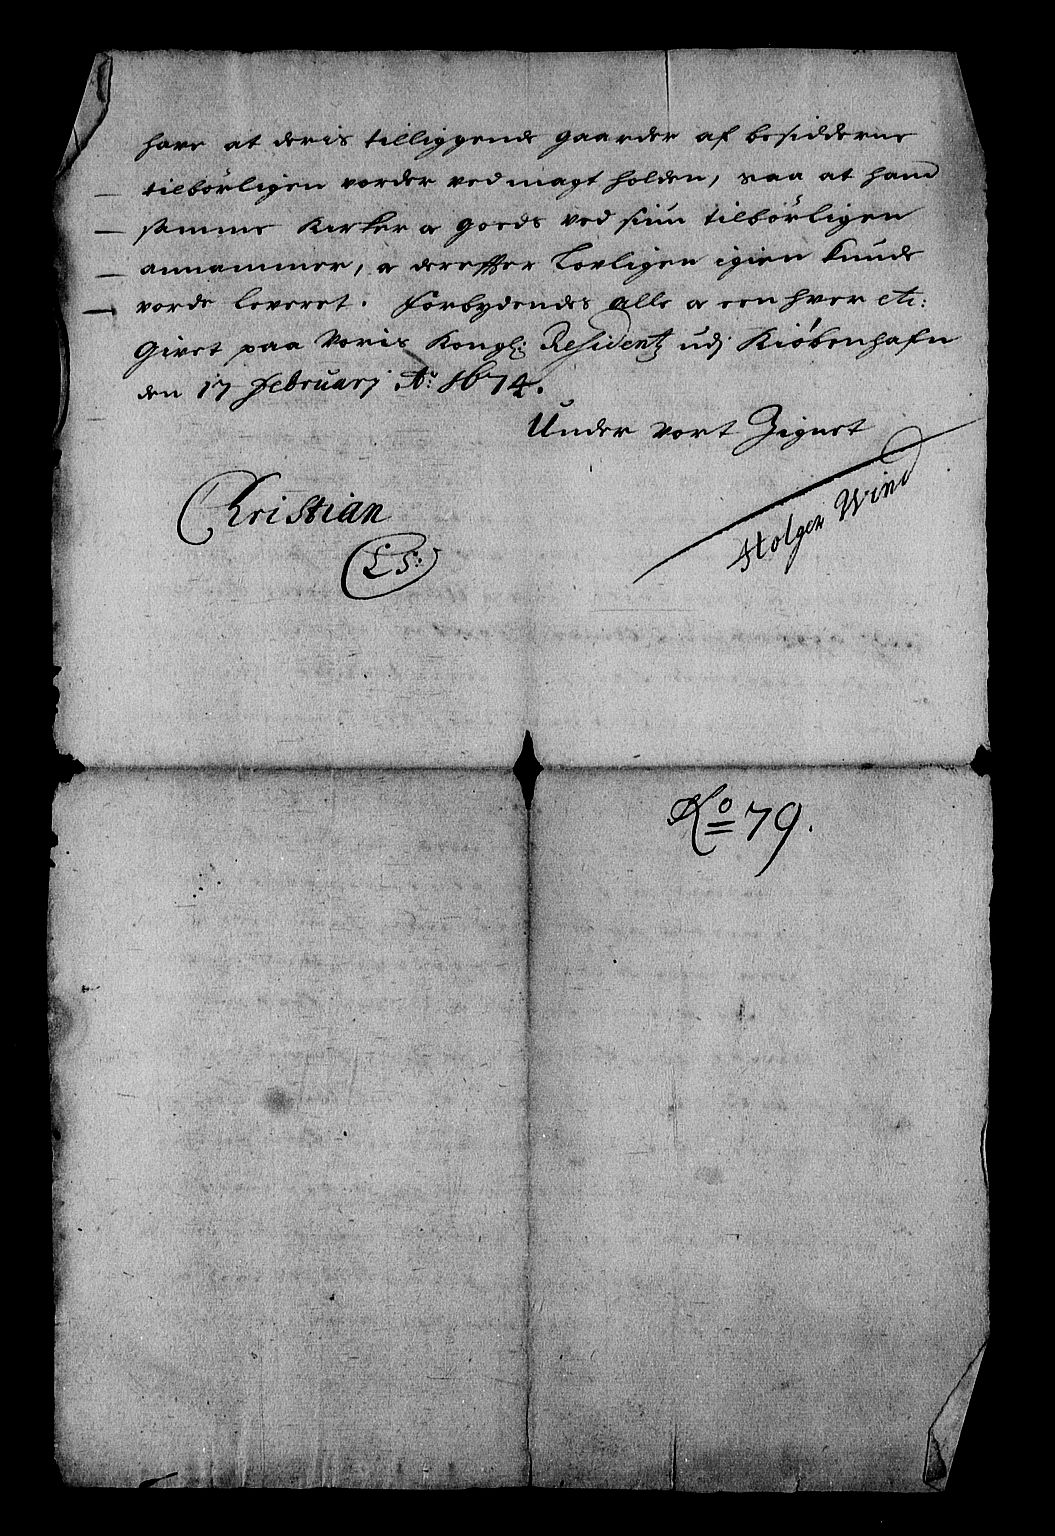 have at deris tilliggende gaarder af besidderne
tilbörligen vorder ved magt holden, saa at hand
samme Kirker & goeds ved siun tilbörligen
annammer, & derefter Lovligen igien kunde
vorde leveret. Forbydendes alle & een hver etc:
Givet paa Voris Kongl: Residentz udj Kiöbenhafn
den 17 Februarj Ao: 1674.
Under vort Zignet
Christian
LS:
Holger Wind
No 79.